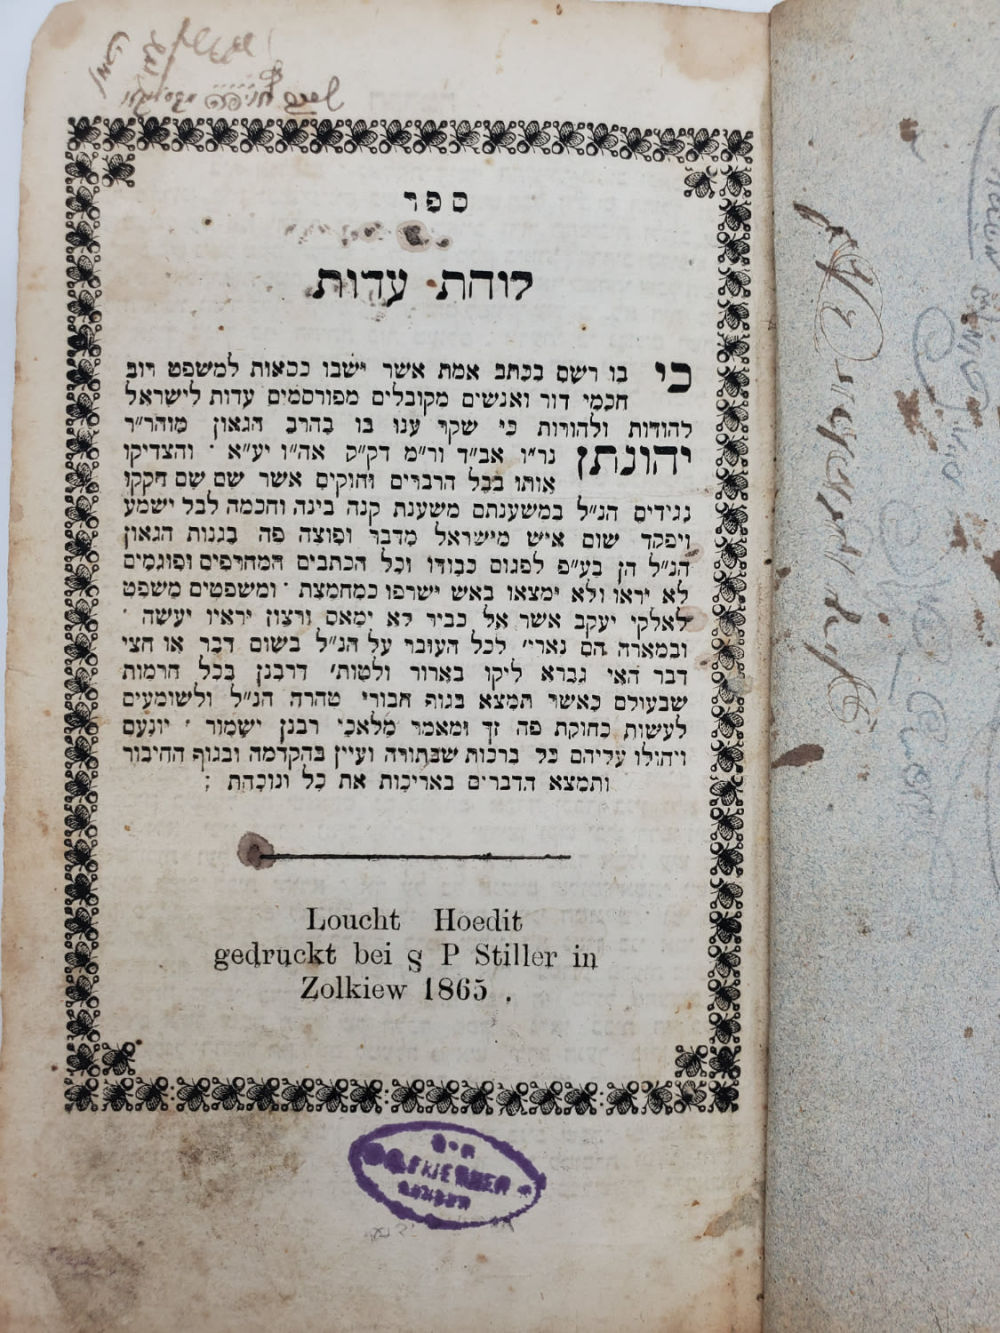 ספר
לוחת עדות
כי בו רשם בכתב אמת אשר ישבו כסאות למשפט רוב
חכמי דור ואנשים מקובלים מפורסמים עדות לישראל
להודות ולהורות כי שקר ענו בו בהרב הגאון מוהר״ר
יהונתן נר״ו אב״ד ור״מ דק״ק אה״ו יע״א · והצדיקו
אותו בכל הדברים וחוקים אשר שם שם חקקו
נגידים הנ״ל במשענתם משענת קנה בינה וחכמה לבל ישמע
ויפקד שום איש מישראל מדבר ופוצה פה בגנות הגאון
הנ״ל הן בע״פ לפגום כבודו וכל הכתבים המחרפים ופוגמים
לא יראו ולא ימצאו באש ישרפו כמחמצת · ומשפטים משפט
לאלקי יעקב אשר אל כביר לא ימאס ורצון יראיו יעשה ·
ובמארה הם נארי׳ לכל העובר על הנ״ל בשום דבר או חצי
דבר האי גברא ליקו בארור ולטות׳ דרבנן בכל חרמות
שבעולם כאשר תמצא בגוף חבורי טהרה הנ״ל ולשומעים
לעשות כחוקת פה זך ומאמר מלאכי רבנן ישמור · יונעם
ויחולו עליהם כל ברכות שבתורה ועיין בהקדמה ובגוף החיבור
ותמצא הדברים באריכות את כל ונוכחת :
Loucht Hoedit
gedruckt bei S P Stiller in
Zolkiew 1865 .